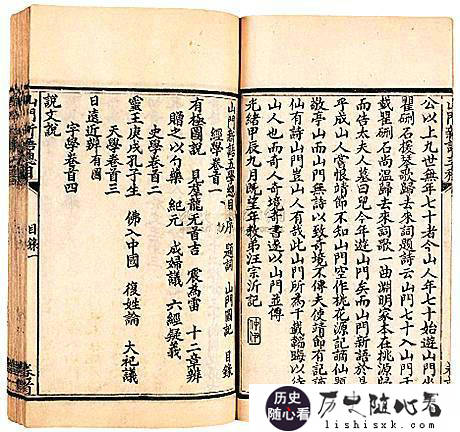 公以上九世無年七十者今山人年七十始遊山門
瞿硎石援琴歌歸去來詞題詩云山門七十入山門
載瞿硎石尚溫歸去來詞歌一曲淵明家本在桃源
而侍太夫人詔兒今年遊山門矣而山門新語於是
乎成山人嘗恨靖節不知山門空作桃花源記謫仙題
敬亭山而山門無詩以致奇境不傳夫使靖節有記
仙有詩山門豈山人有哉此山門所為千載韜晦以
山人也而奇人奇境奇書遂以山門並傳
光緒甲辰九月既望年教弟汪宗沂記
山門新語五學總目 序 題詞 山門圖記 目錄
經學卷首一
有極圖說 見羣龍无首吉 震為雷 十二章辨
贈之以勺藥 紀元 成婦議 六經疑義
史學卷首二
靈王庚戌孔子生 佛入中國 復姓論 大祀議
天學卷首三
日遠近辨有圖
字學卷首四
說文說
山門新語總目 目錄一
历史随心看
历史随心看
lishisxk.com